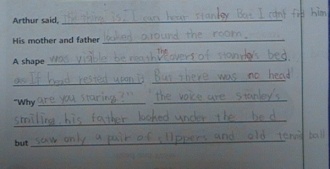 Arthur said, is," I can hear stanley But I cdnt fid him
His mother and father looked around the room.
A shape was visible beneath the covert of stanley's bed.
as If head rested upon it But there was no head
"Why are you staring?" the voice was stanley's
smiling. his father looked under the bed
but saw only a pair of slippers and old tennis ball